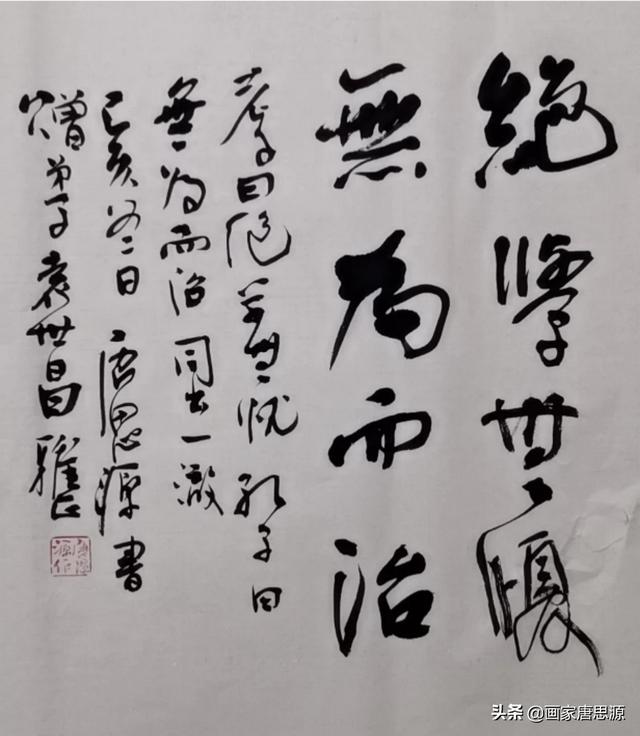 絕學無憂
無為而治
老子曰绝学無忧 孔子曰
無為而治同出一澈
己亥二日 唐思源書
赠弟子袁世昌雅正
唐思源作
头条 @画家唐思源